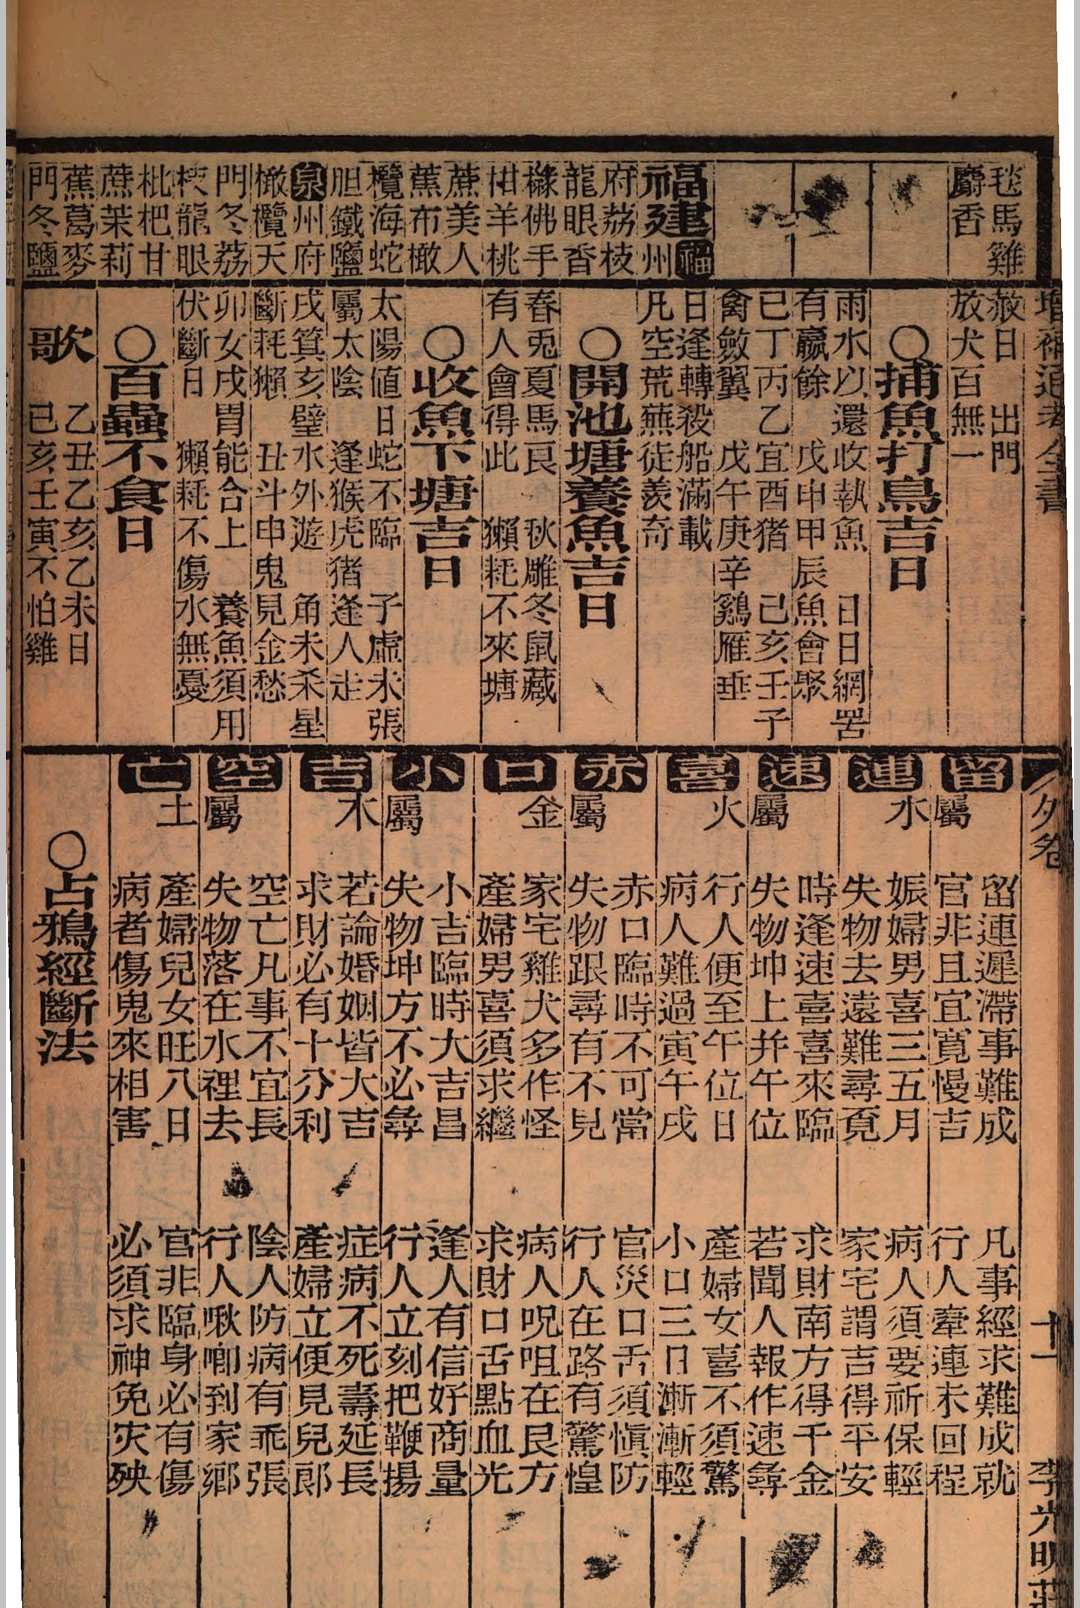 毯馬雞
麝香
福建福州
府荔枝
龍眼香
櫞佛手
柑羊桃
蔗美人
蕉布橄
欖海蛇
胆鐵鹽
泉州府
橄欖天
門冬荔
枝龍眼
枇杷甘
蔗茉莉
蕉葛麥
門冬鹽
赦日 出門
放犬百無一
○捕魚打鳥吉日
雨水以還收執魚 日日網罟
有贏餘 戊申甲辰魚會聚
己丁丙乙宜酉猪 己亥壬子
禽斂翼 戊午庚辛鷄雁垂
日逢轉殺船滿載
凡空荒蕪徒羨奇
○開池塘養魚吉日
春兎夏馬艮 秋雕冬鼠藏
有人會得此 獺耗不來塘
○收魚下塘吉日
太陽値日蛇不臨 子虛水張
屬太陰 逢猴虎猪逢人走
戌箕亥壁水外遊 角未杀星
斷耗獺 丑斗申鬼見金愁
卯女戌胃能合上 養魚須用
伏斷日 獺耗不傷水無憂
○百蟲不食日
歌 乙丑乙亥乙未日
己亥壬寅不怕雞
增補通考全書
外卷
十一
李光明莊
留連 屬水
留連遲滯事難成 凡事經求難成就
官非且宜寬慢吉 行人牽連未回程
娠婦男喜三五月 病人須要祈保輕
失物去遠難尋覓 家宅謂吉得平安
速喜 屬火
時逢速喜喜來臨 求財南方得千金
失物坤上并午位 若聞人報作速尋
行人便至午位日 產婦女喜不須驚
病人難過寅午戌 小口三日漸漸輕
赤口 屬金
赤口臨時不可當 官災口舌須愼防
失物跟尋有不見 行人在路有驚惶
家宅雞犬多作怪 病人呪咀在艮方
產婦男喜須求繼 求財口舌點血光
小吉 屬木
小吉臨時大吉昌 逢人有信好商量
失物坤方不必尋 行人立刻把鞭揚
若論婚姻皆大吉 症病不死壽延長
求財必有十分利 產婦立便見兒郎
空亡 屬土
空亡凡事不宜長 陰人防病有乖張
失物落在水裡去 行人啾唧到家鄉
產婦兒女旺八日 官非臨身必有傷
病者傷鬼來相害 必須求神免灾殃
○占鴉經斷法